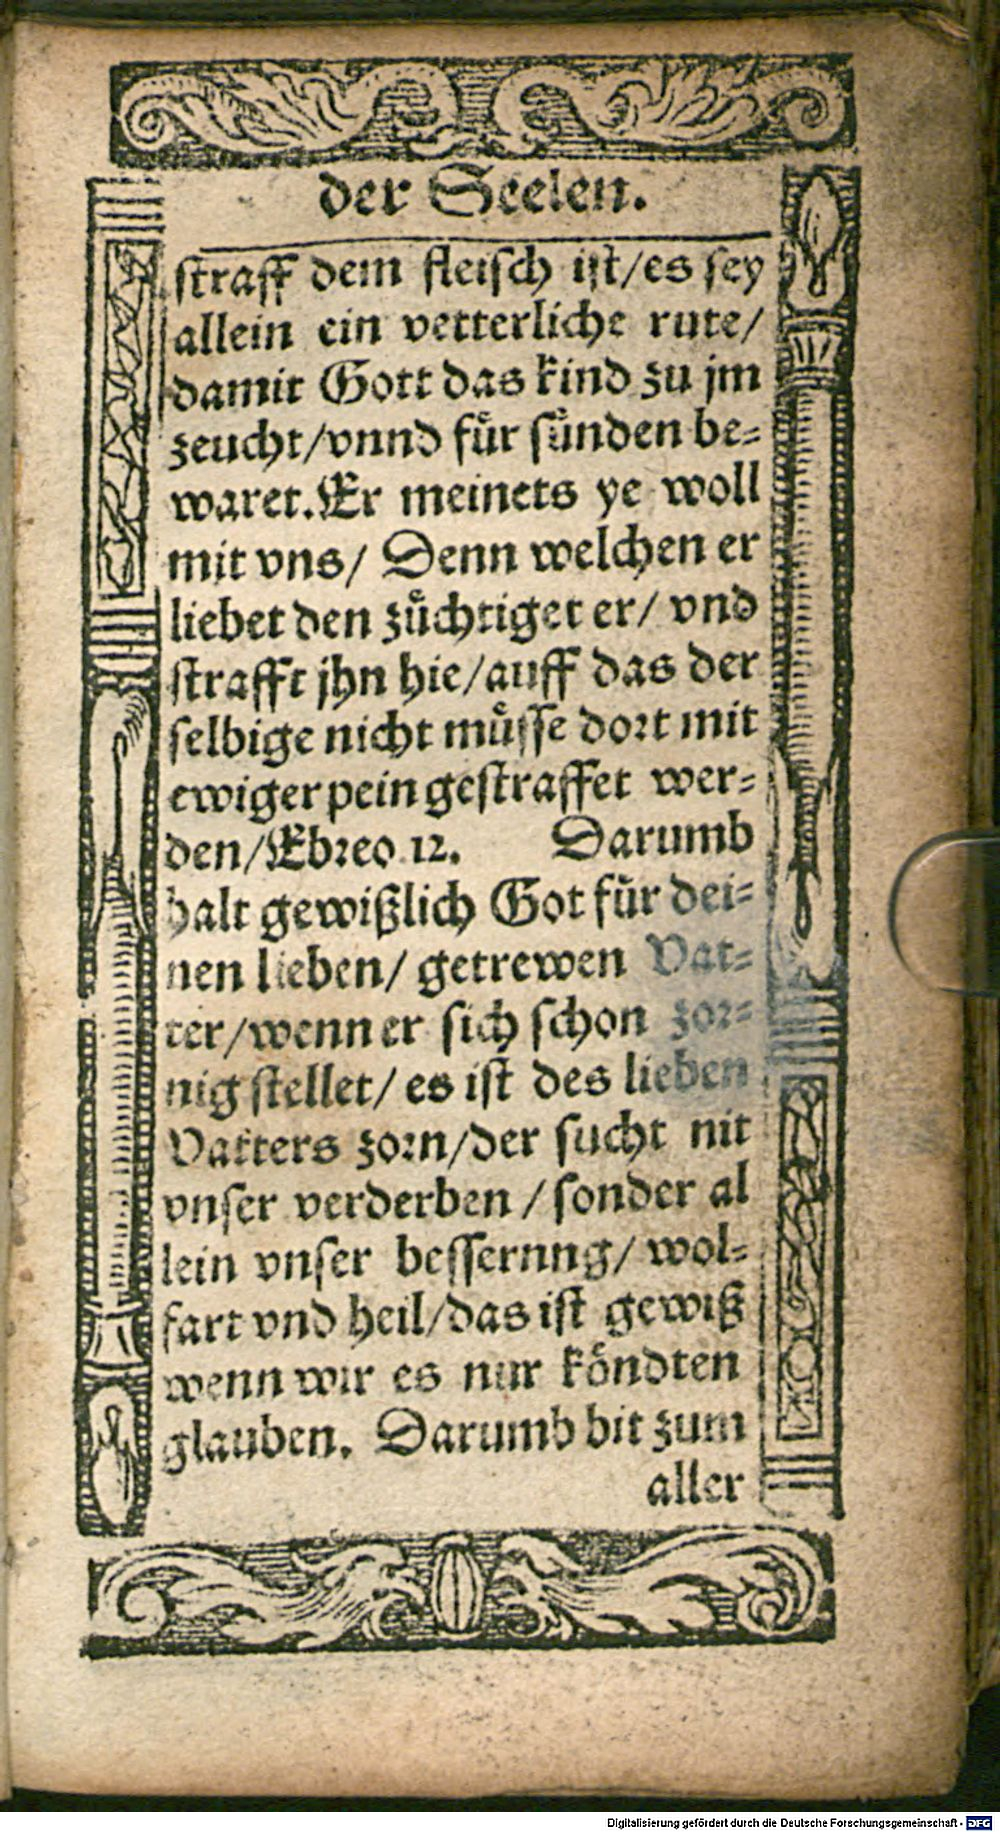 der Seelen.
straff dem fleisch ist/es sey
allein ein vetterliche rute/
damit Gott das kind zu jm
zeucht/vnnd fuͤr suͤnden be⸗
waret.Er meinets ye woll
mit vns/ Denn welchen er
liebet den zuͤchtiget er/ vnd
strafft jhn hie/auff das der
selbige nicht muͤsse dort mit
ewiger pein gestraffet wer⸗
den/Ebreo 12. Darumb
halt gewißlich Got fuͤr dei⸗
nen lieben/ getrewen Vat⸗
ter/wenn er sich schon zor⸗
nig stellet/ es ist des lieben
Vatters zorn/der sucht nit
vnser verderben /sonder al
lein vnser bessernng/ wol⸗
fart vnd heil/das ist gewiß
wenn wir es nur koͤndten
glauben. Darumb bit zum
aller
Digitalisierung gefördert durch die Deutsche Forschungsgemeinschaft - DFG